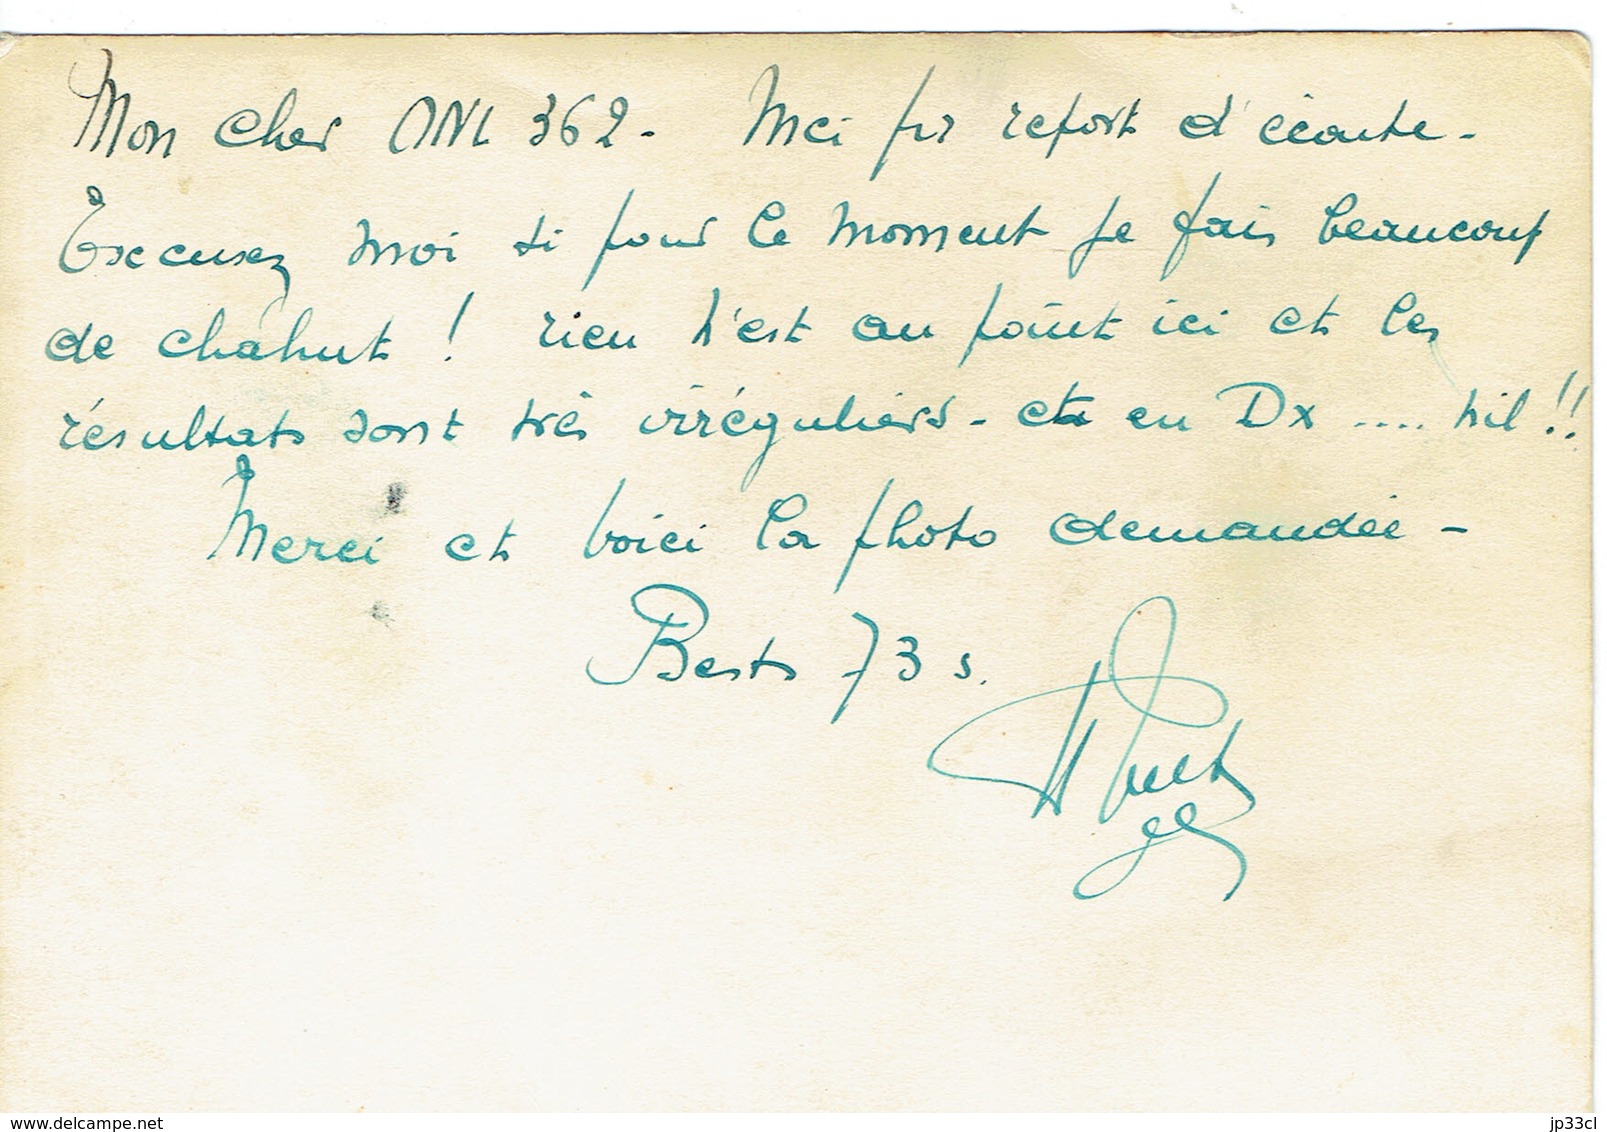 Mon cher ONL 362 - Mci pr report d'écoute -
Excusez moi si pour le moment je fais beaucoup
de chahut ! rien n'est au point ici et les
résultats sont très irréguliers - et en Dx .... nil !!
Merci et voici la photo demandée -
Bests 73 s.
www.delcampe.net
jp33cl